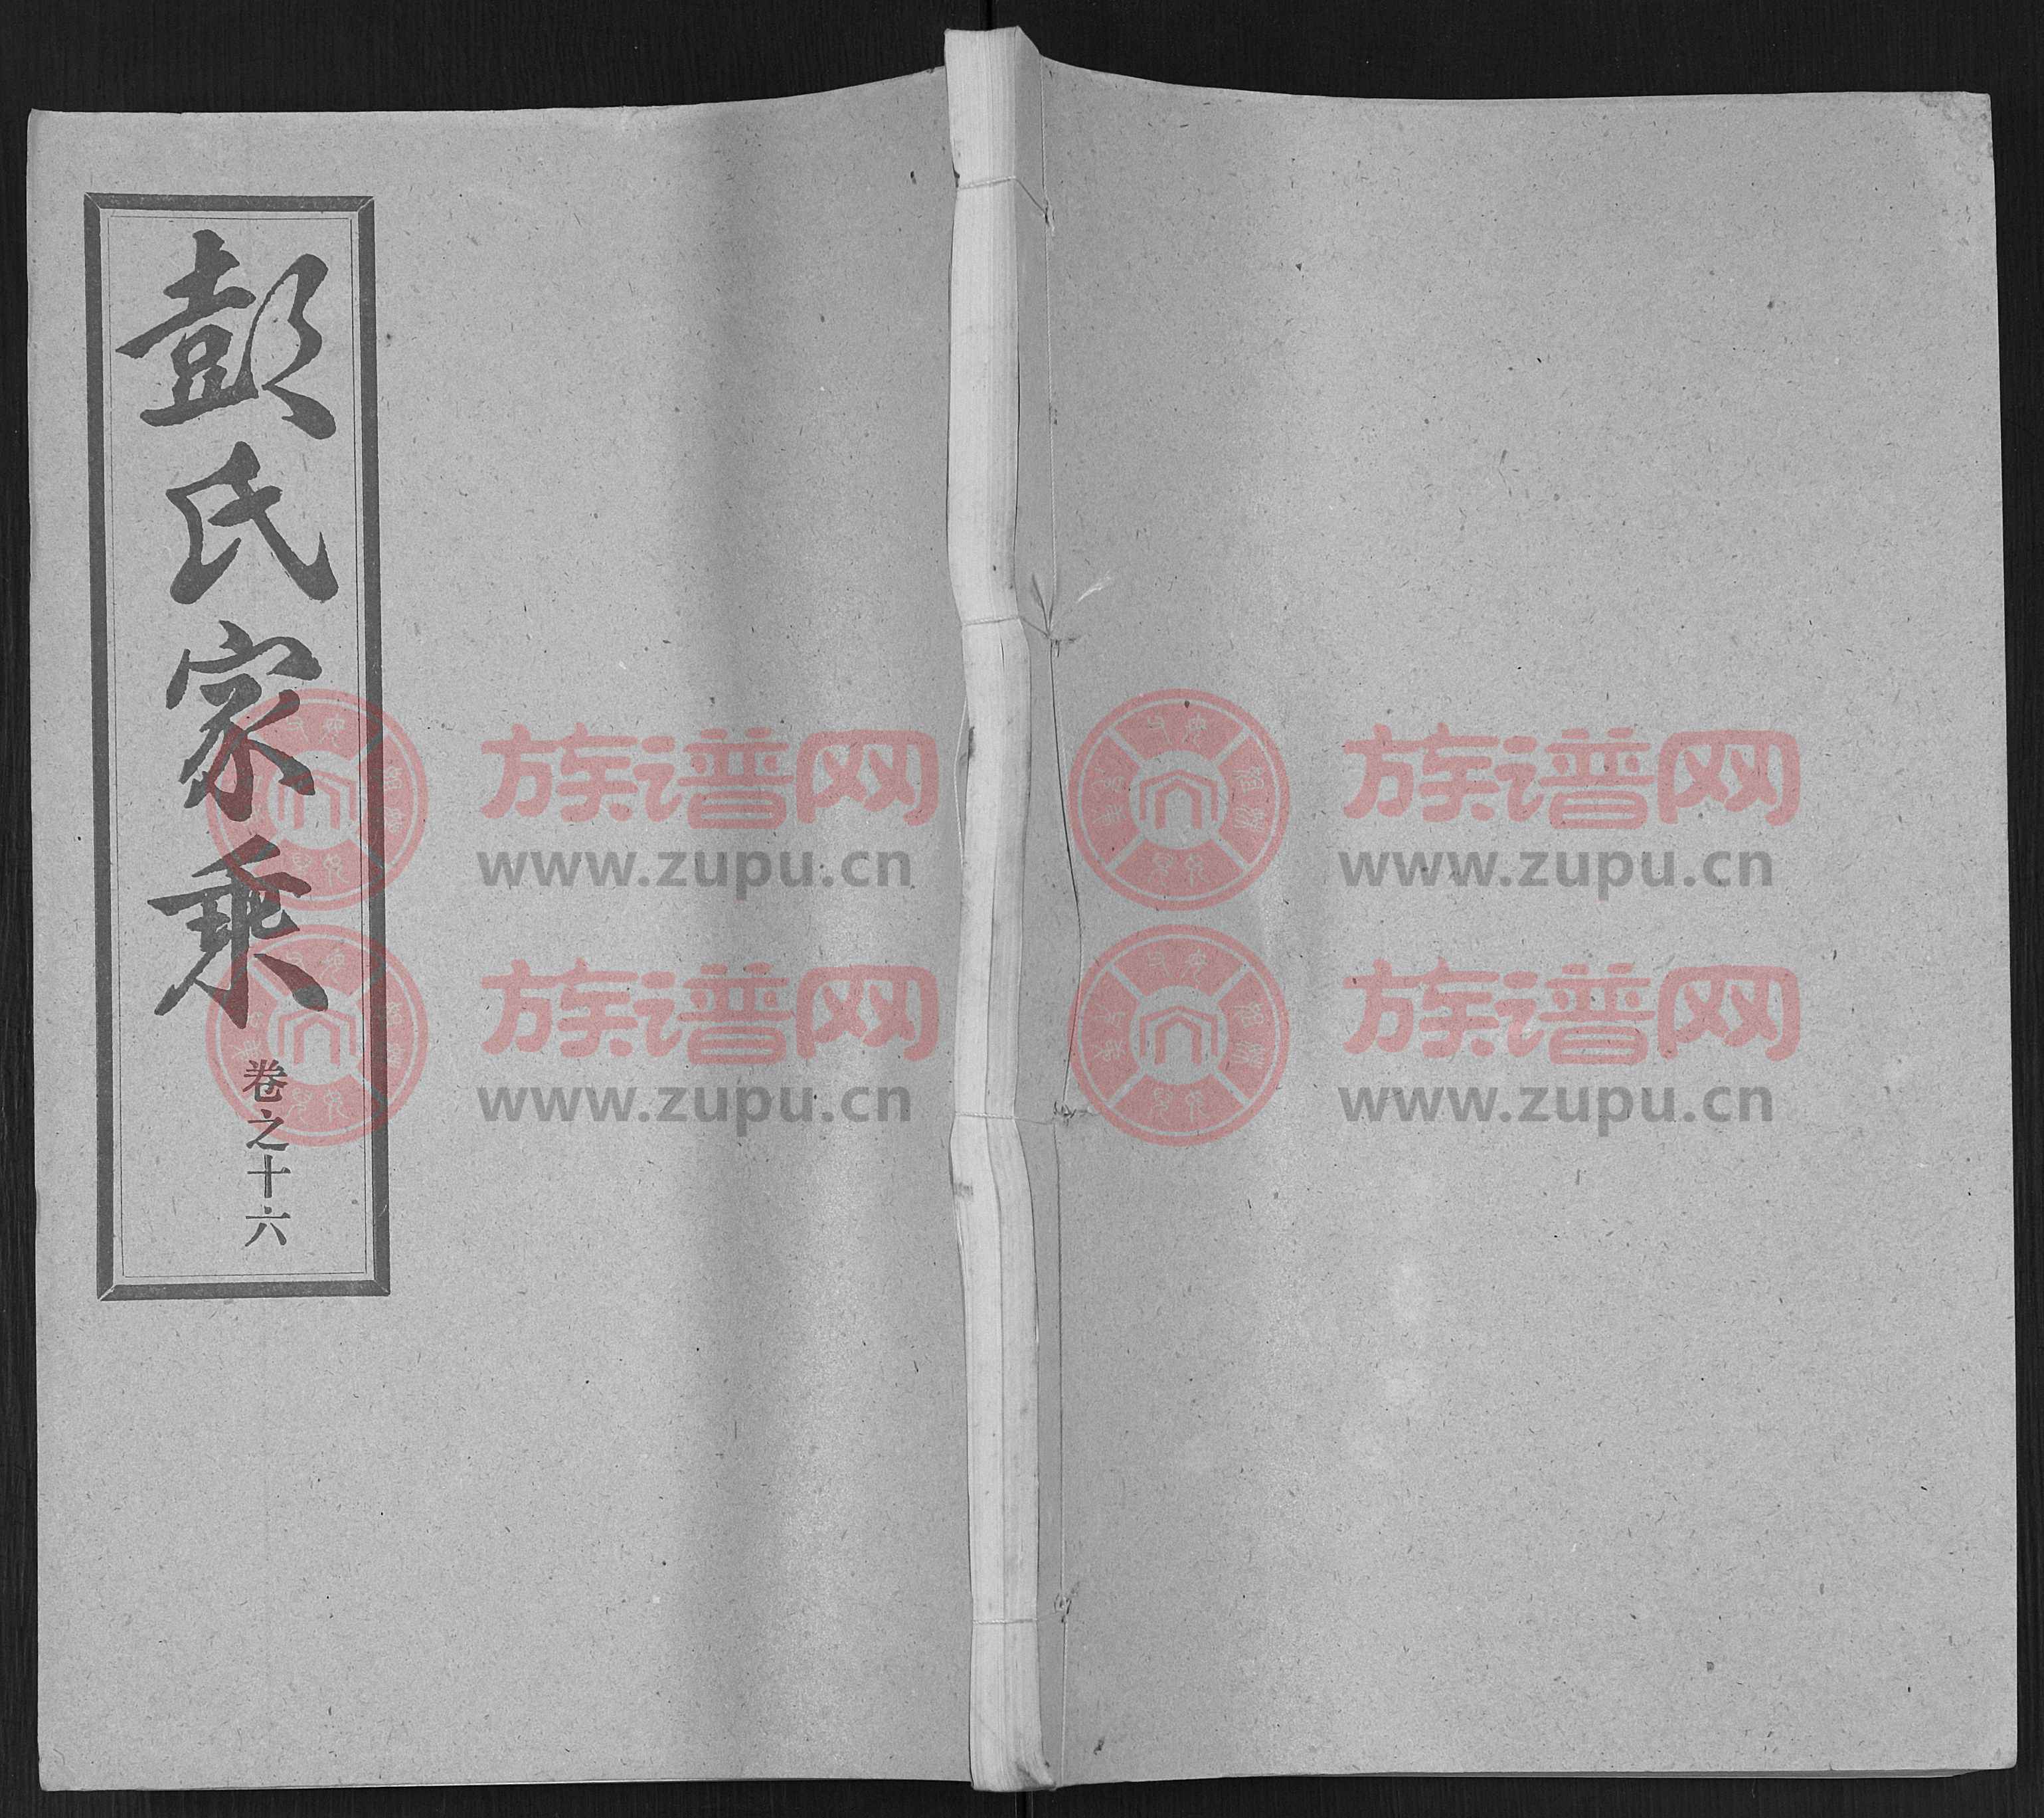 彭氏家乘
卷之十六
族谱网
www.zupu.cn
族谱网
www.zupu.cn
族谱网
www.zupu.cn
族谱网
www.zupu.cn